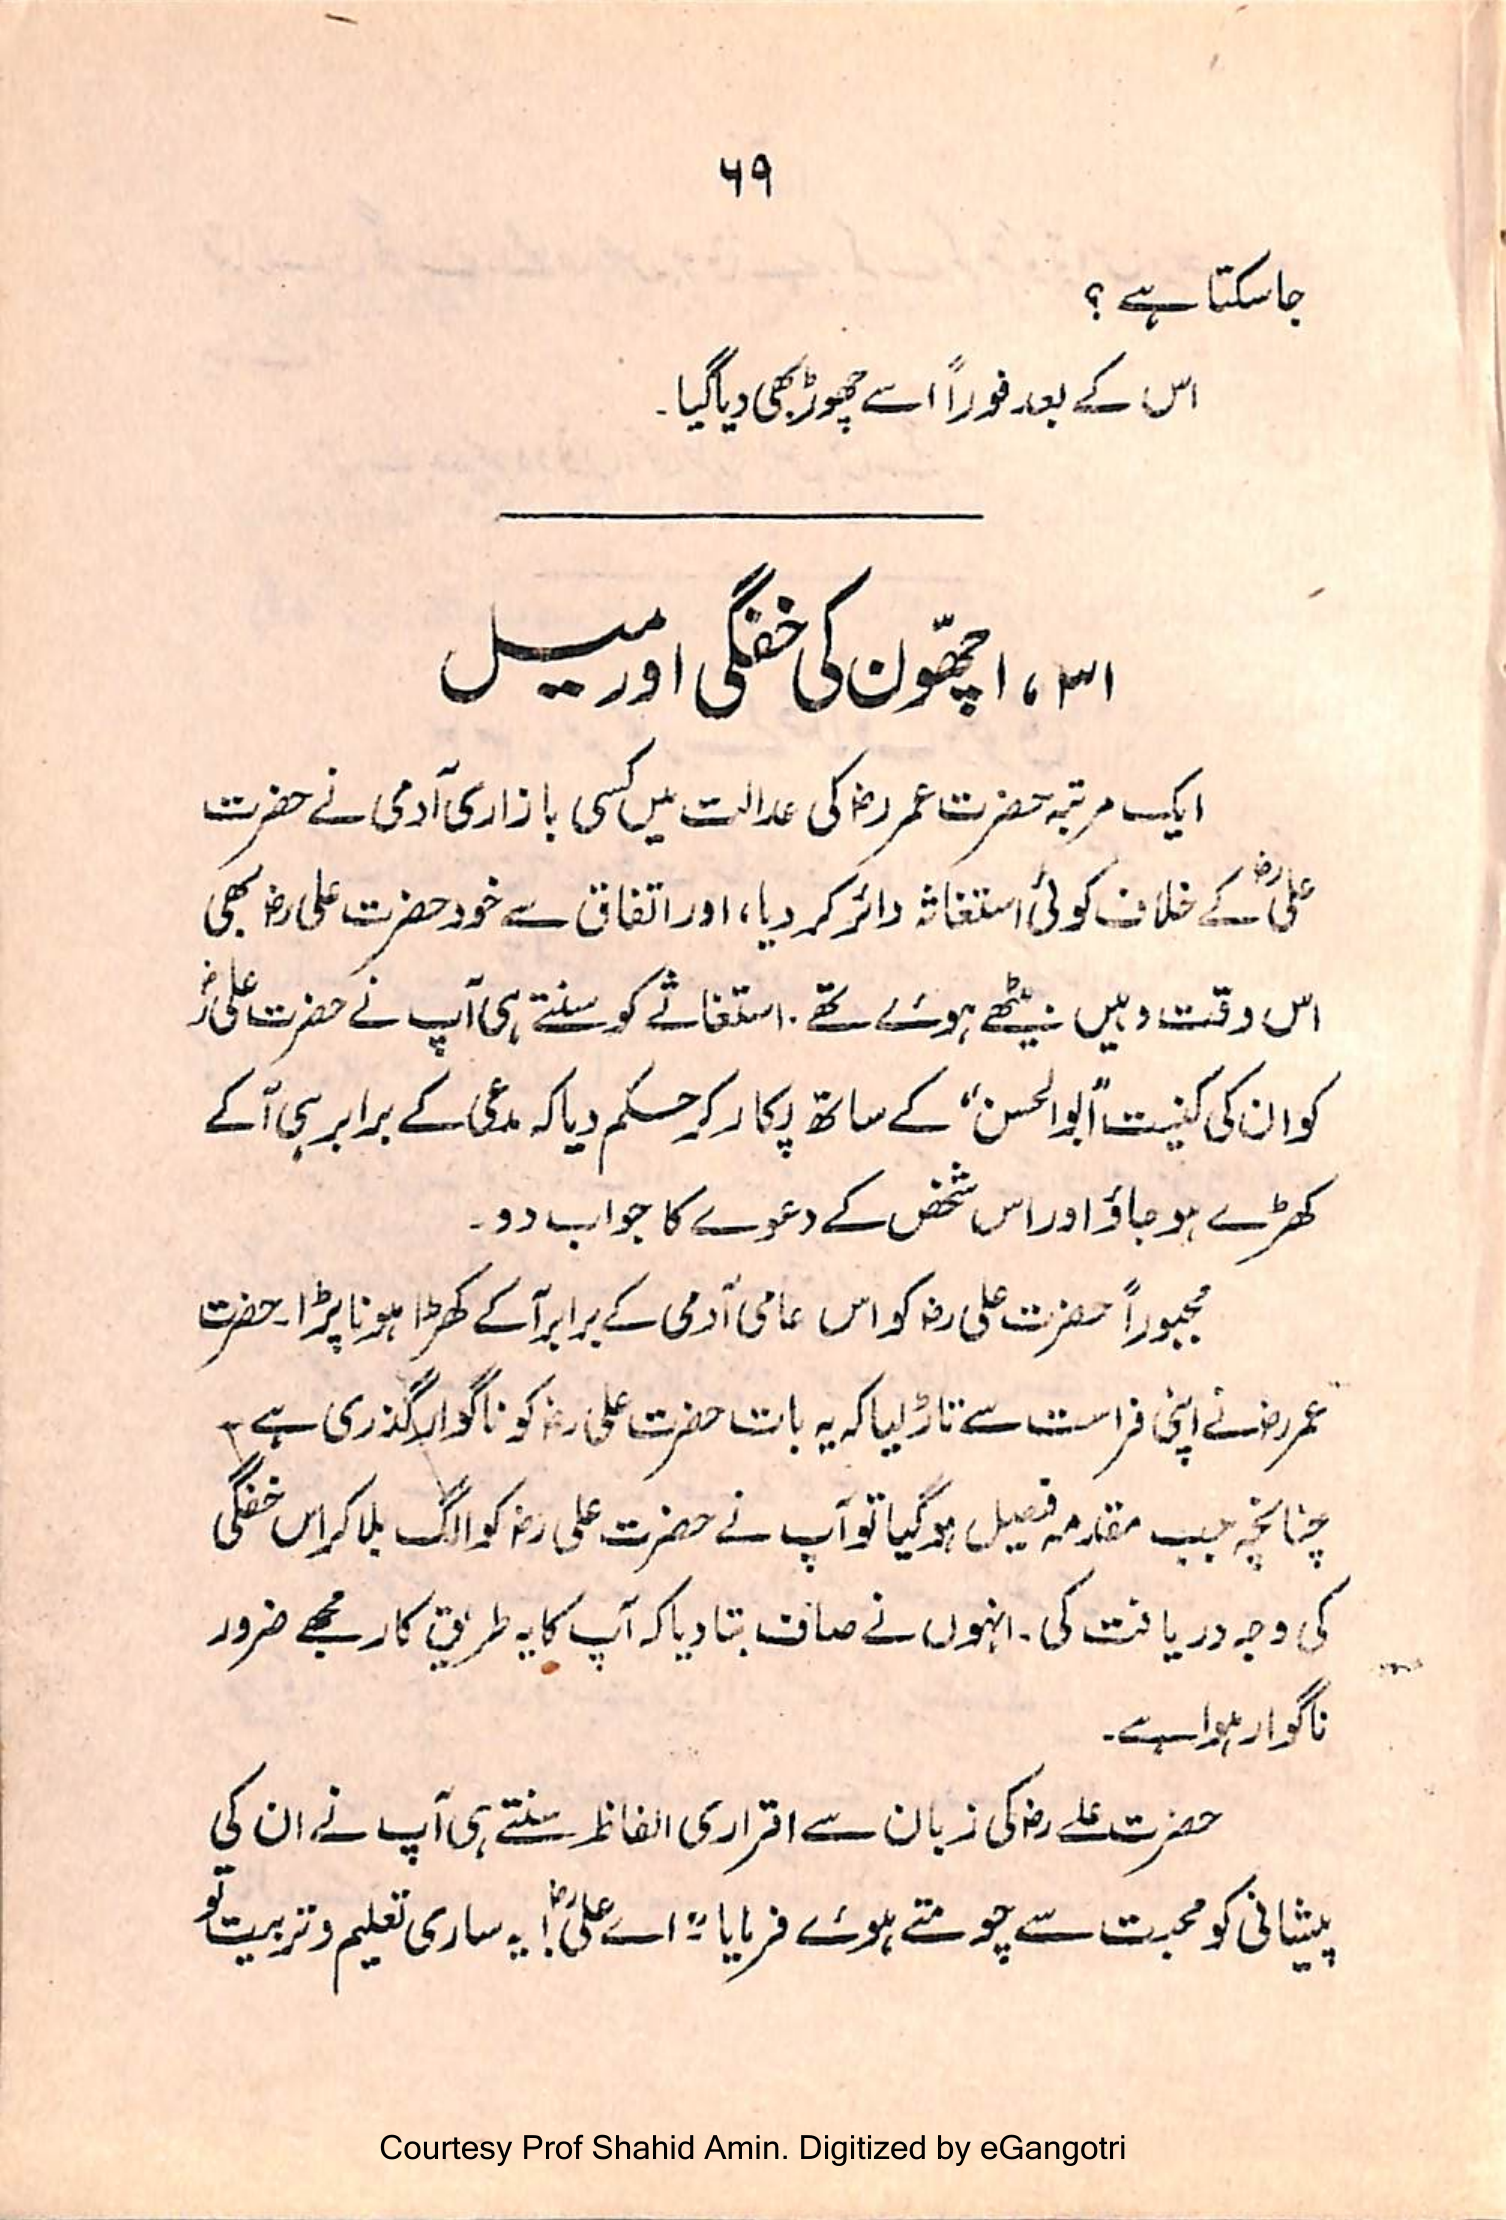 ۶۹
جاسکتا ہے ؟
اس کے بعد فوراً اسے چھوڑ بھی دیا گیا۔
۳۱، اچھّوں کی خفگی اور میل
ایک مرتبہ حضرت عمر رضؓ کی عدالت میں کسی بازاری آدمی نے حضرت
علی رضؓ کے خلاف کوئی استغاثہ دائر کر دیا، اور اتفاق سے خود حضرت علی رضؓ بھی
اس وقت وہیں بیٹھے ہوئے تھے۔ استغاثے کو سنتے ہی آپ نے حضرت علی رضؓ
کو ان کی کنیت "ابوالحسن" کے ساتھ پکار کر حکم دیا کہ مدعی کے برابر ہی آ کے
کھڑے ہو جاؤ اور اس شخص کے دعوے کا جواب دو۔
مجبوراً حضرت علی رضؓ کو اس عامی آدمی کے برابر آ کے کھڑا ہونا پڑا۔ حضرت
عمر رضؓ نے اپنی فراست سے تاڑ لیا کہ یہ بات حضرت علی رضؓ کو ناگوار گذری ہے۔
چنانچہ جب مقدمہ فیصل ہو گیا تو آپ نے حضرت علی رضؓ کو الگ بلا کر اس خفگی
کی وجہ دریافت کی۔ انہوں نے صاف بتا دیا کہ آپ کا یہ طریق کار مجھے ضرور
ناگوار ہوا ہے۔
حضرت علے رضؓ کی زبان سے اقراری الفاظ سنتے ہی آپ نے ان کی
پیشانی کو محبت سے چومتے ہوئے فرمایا "اے علی رضؓ! یہ ساری تعلیم و تربیت تو
Courtesy Prof Shahid Amin. Digitized by eGangotri